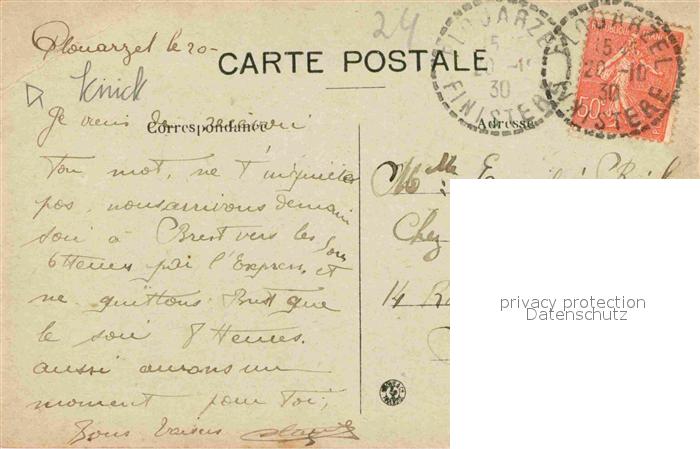 24
Plouarzel le 20-
CARTE POSTALE
PLOUARZEL
15
20 -10
30
FINISTERE
PLOUARZEL
15
20 -10
30
FINISTERE
50
Knick
Correspondance
Adresse
Je viens de recevoir
ton mot, ne t'inquiète
pas, nous arrivons demain
soir à Brest vers les
6 Heures par l'Express, et
ne quittons Brest que
le soir 8 Heures.
aussi aurons un
moment pour toi,
Bons baisers
Melle
Chez
14 R
privacy protection
Datenschutz